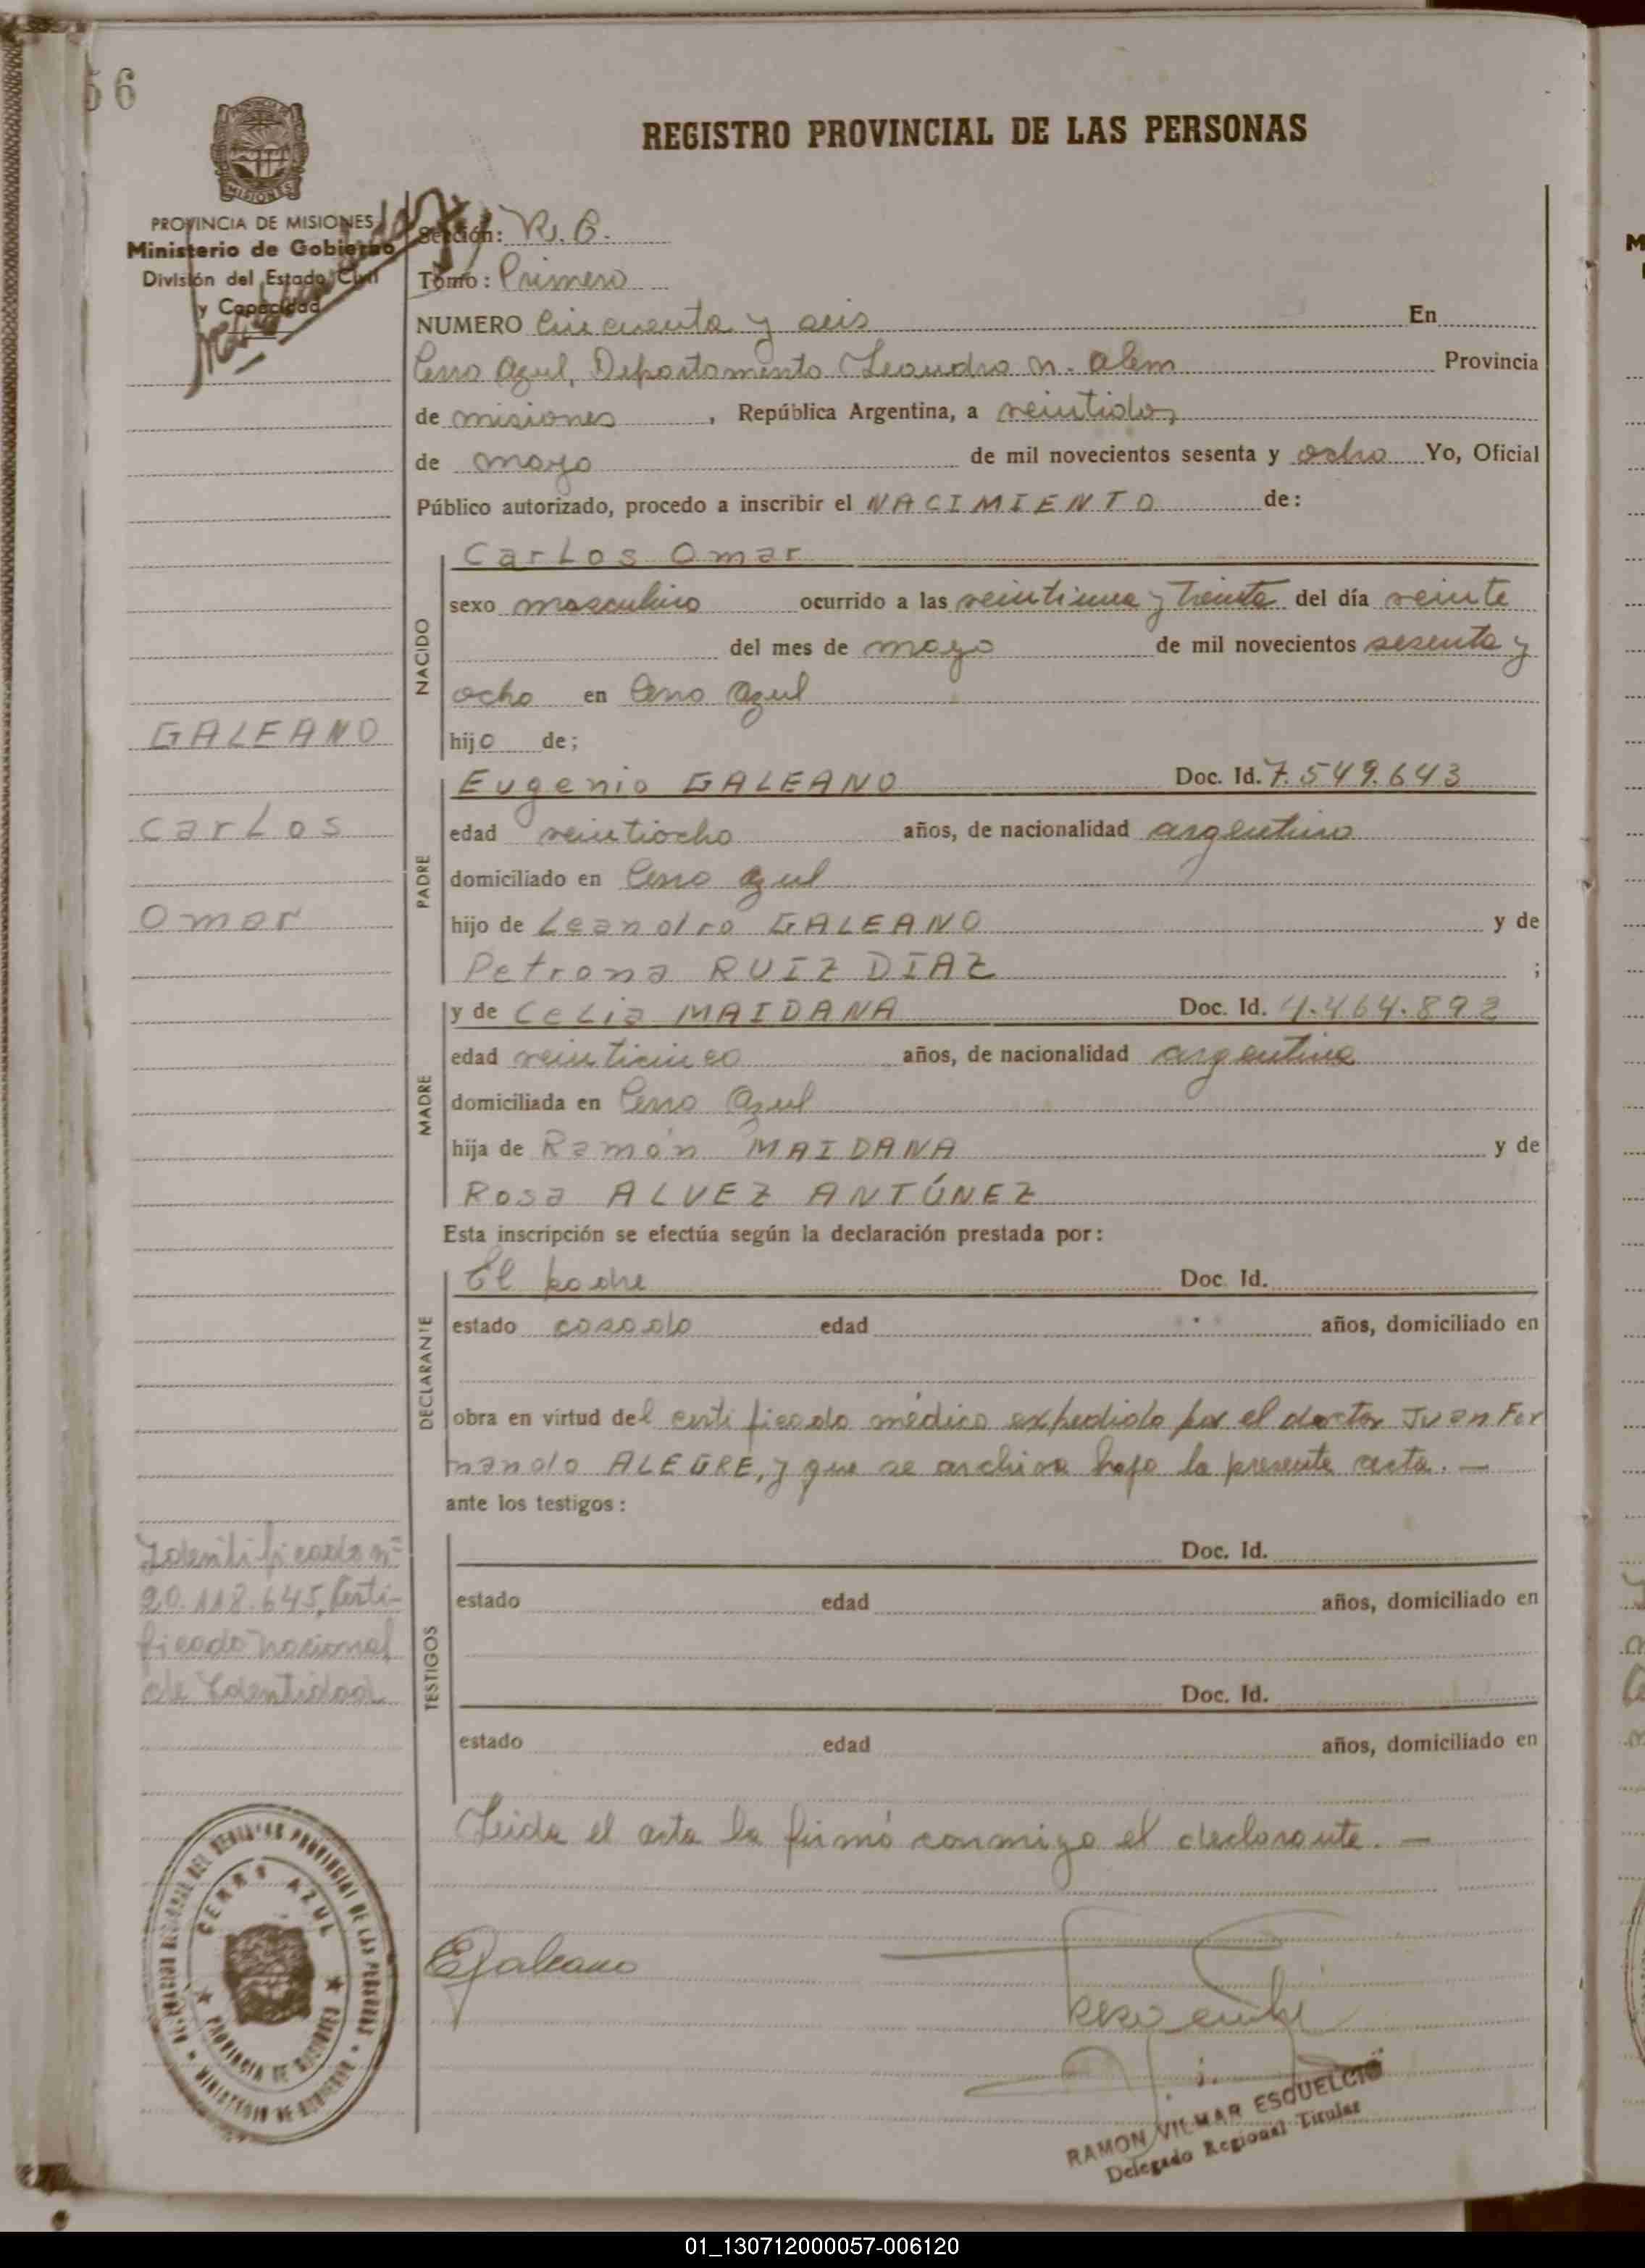 56
REGISTRO PROVINCIAL DE LAS PERSONAS
MISIONES
PROVINCIA DE MISIONES
Ministerio de Gobierno
División del Estado Civil
y Capacidad
Sección: R. C.
Tomo: Primero
NUMERO Cincuenta y seis En
Cerro Azul, Departamento Leandro N. Alem Provincia
de misiones, República Argentina, a veintidos
de mayo de mil novecientos sesenta y ocho Yo, Oficial
Público autorizado, procedo a inscribir el NACIMIENTO de:
NACIDO
Carlos Omar
sexo masculino ocurrido a las veintiuna y treinta del día veinte
del mes de mayo de mil novecientos sesenta y
ocho en Cerro Azul
hijo de;
GALEANO
Carlos
Omar
PADRE
Eugenio GALEANO Doc. Id. 7.549.643
edad veintiocho años, de nacionalidad argentino
domiciliado en Cerro Azul
hijo de Leandro GALEANO y de
Petrona RUIZ DIAZ ;
MADRE
y de Celia MAIDANA Doc. Id. 4.464.892
edad veinticinco años, de nacionalidad argentina
domiciliada en Cerro Azul
hija de Ramón MAIDANA y de
Rosa ALVEZ ANTÚNEZ
Esta inscripción se efectúa según la declaración prestada por:
DECLARANTE
El padre Doc. Id.
estado casado edad años, domiciliado en
obra en virtud del certificado médico expedido por el doctor Juan Fer
nando ALEGRE, y que se archiva bajo la presente acta. —
ante los testigos:
Identificado nº
20.118.645, Certi-
ficado nacional
de Identidad
TESTIGOS
Doc. Id.
estado edad años, domiciliado en
Doc. Id.
estado edad años, domiciliado en
Leida el acta la firmó conmigo el declarante. —
EGaleano
CERRO AZUL
PROVINCIA DE MISIONES
MINISTERIO DE GOBIERNO
RAMON VILMAR ESQUELCIO
Delegado Regional Titular
01_130712000057-006120